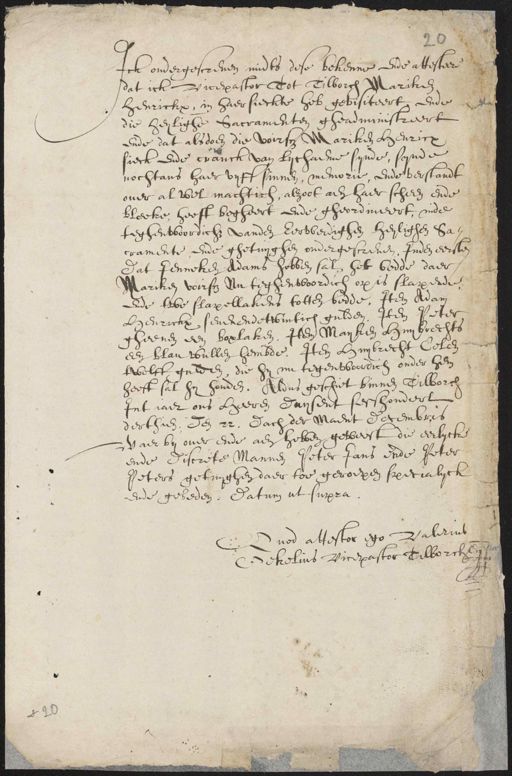 20
Ick ondergescreven midts dese bekenne ende attestere
dat ick Vicepastor tot Tilborch Mariken
Henrickx, in haer sieckte heb gevisiteert ende
die heylighe Sacramenten gheadministreert
ende dat alsdoen die voirsz Mariken Henricx
sieck ende cranck van lychaeme synde, synde
nochtans haer vyff sinnen, memorie, ende verstandt
over al wel machtich, alsoot aen haer scheen ende
bleeke, heeft begheert ende gheordineert, inde
teghenwoordicht vanden eerweerdighen heylighen Sa-
cramente ende ghetuyghen ondergescreven. Inden eersten
dat Jenneken Adams hebben sal het bedde daer
Mariken voirsz nu teghenwoordich op is slapende,
ende twe slaeplakens totten bedde. Item Adam
Henrickx sevenendetwintich gulden. Item Peter
Gheenen een boxlaken. Item Mayken Huybrechts
een blau wullen hemde. Item Huybrecht
twelff gulden, die hy nu tegenwoordich onder hem
heeft sal hy houden. Aldus geschiet binnen Tilborch
Int jaer ons Heeren dusent seshondert
derthien, den 22. dach der Maent Decembris
Daer by over ende aen hebben geweest die eerlycke
ende discrete Mannen Peter Jans ende Peter
Peters getuyghen daer toe geroepen specialyck
ende gebeden. Datum ut supra.
Quod attestor ego Valerius
Vicepastor Tilborch
20